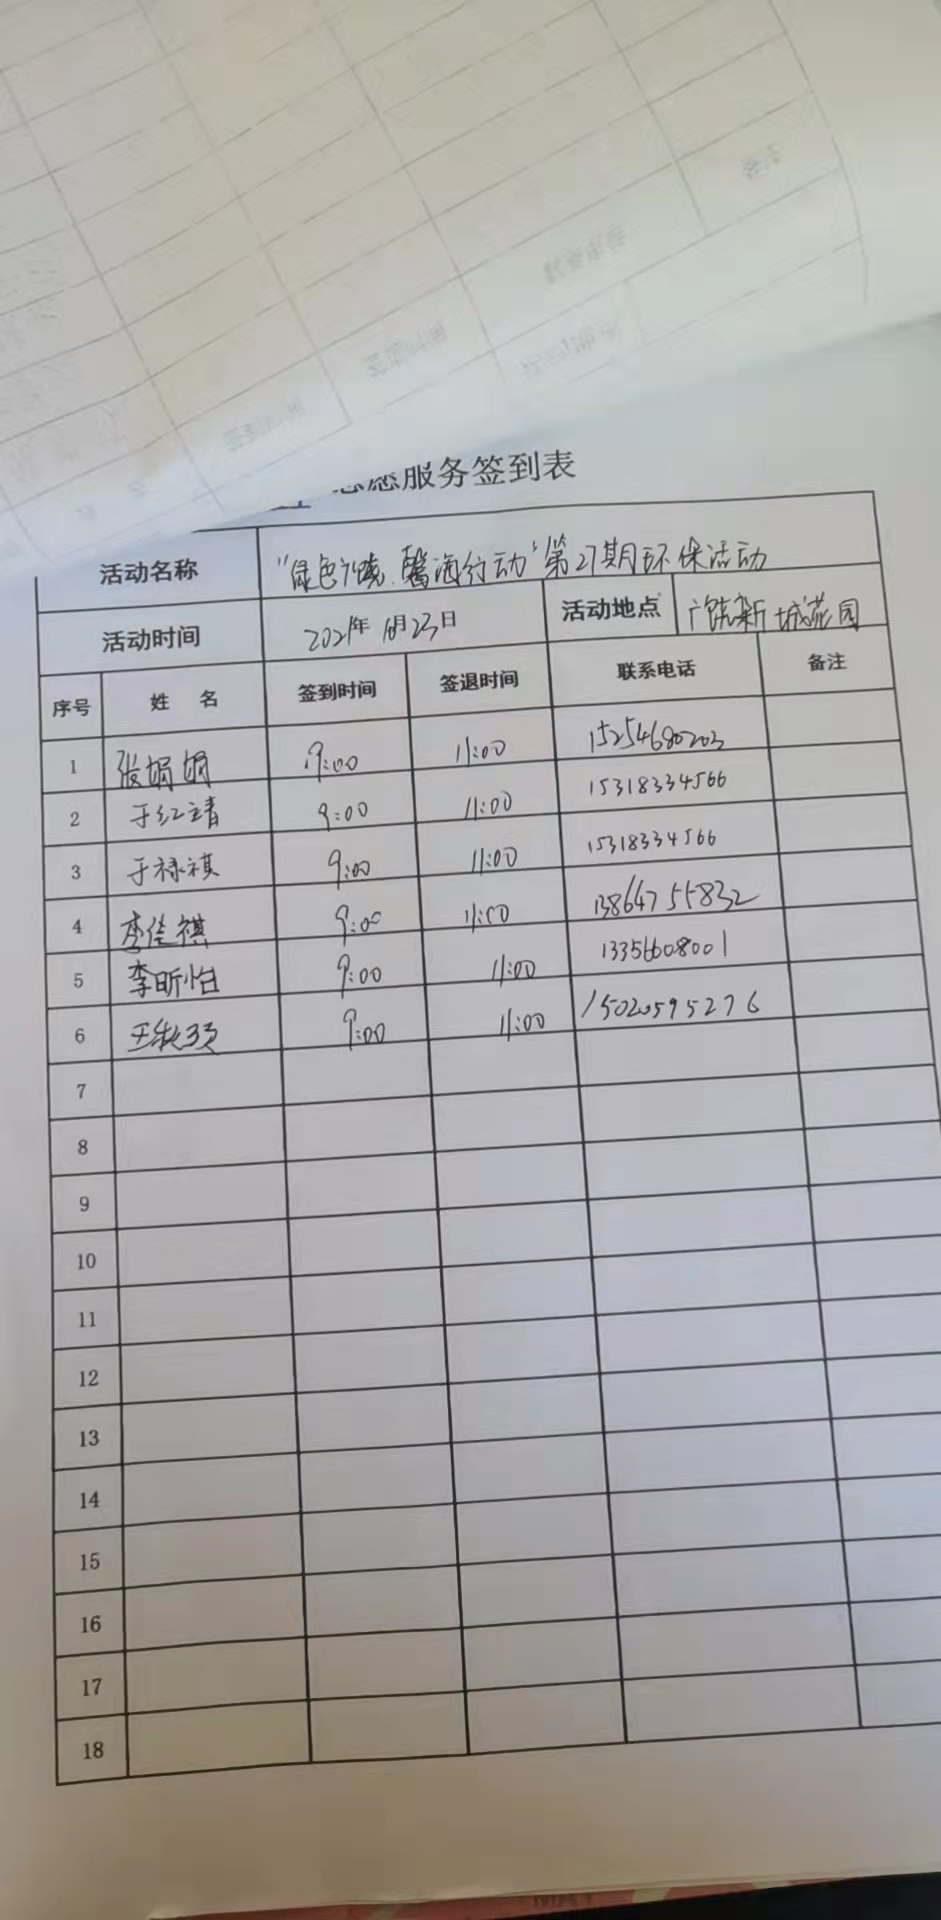 志愿服务签到表
活动名称 "绿色广饶.馨海行动"第27期环保活动
活动时间 2021年10月23日 活动地点 广饶新城花园
序号 姓 名 签到时间 签退时间 联系电话 备注
1 张娟娟 9:00 11:00 15254680203
2 于红靖 9:00 11:00 15318334566
3 于禄祺 9:00 11:00 15318334566
4 李佳祺 9:00 11:00 13864755832
5 李昕怡 9:00 11:00 13356608001
6 9:00 11:00 15020595276
7
8
9
10
11
12
13
14
15
16
17
18